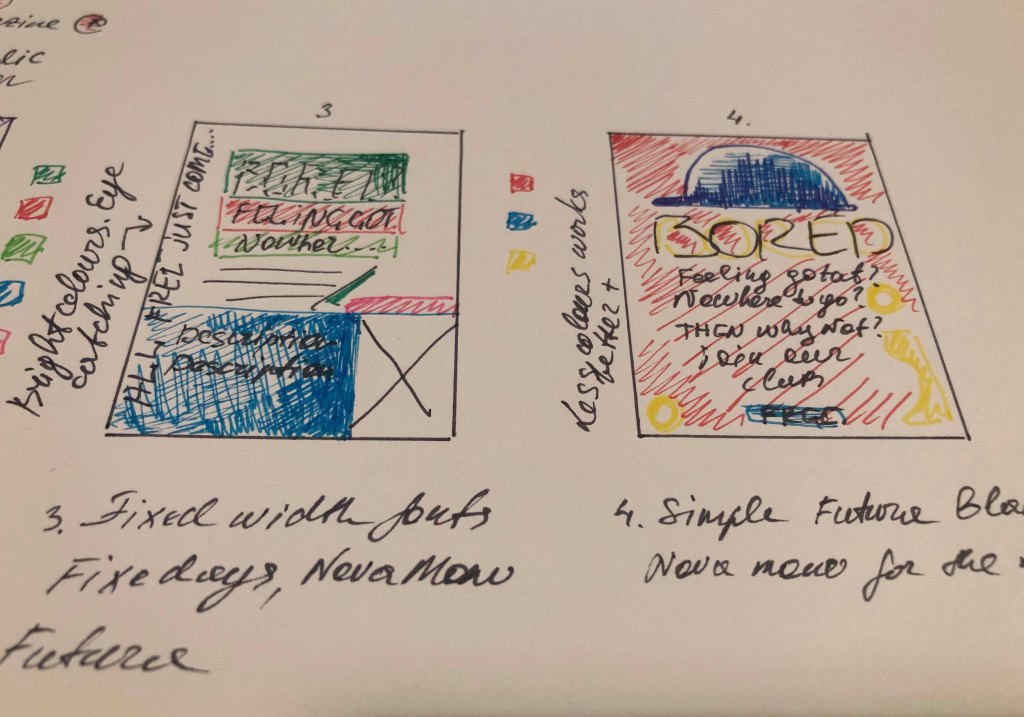 3
4.
Bright colours. Eye
catching
ALL FREE JUST COME....
FEELING GOT
Nowher...
Description
Description
Less colours works
better +
BORED
Feeling gotat?
Nowhere to go?
THEN why Not?
join our
club
FREE
3. Fixed width fonts
Fixedays, Nova Mono
Future
4. Simple Future Bla
Nova mono for the